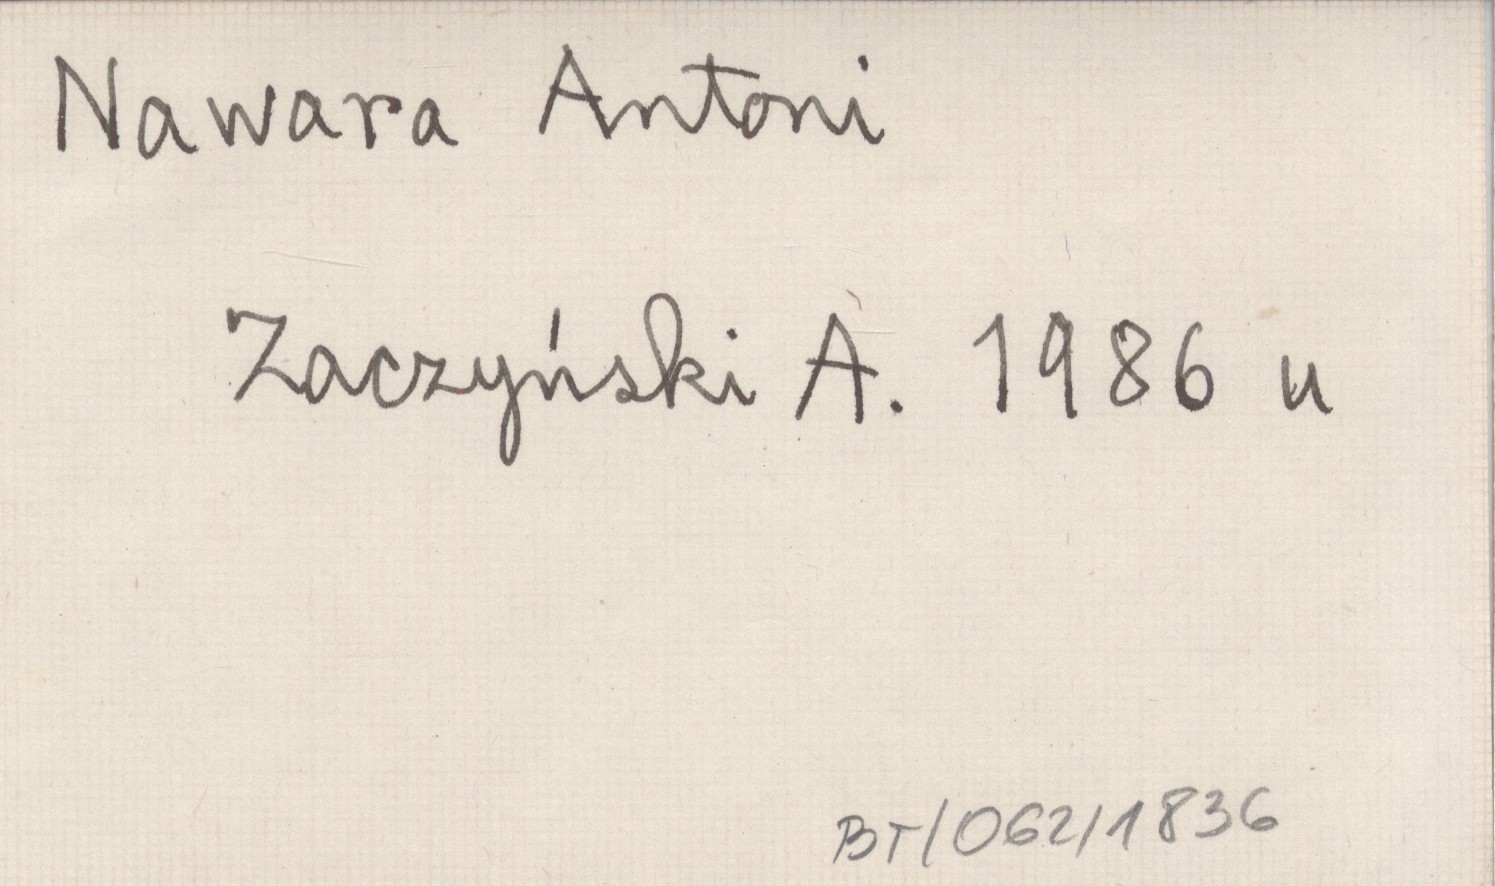 Nawara Antoni
Zaczyński A. 1986 u
BT/062/1836